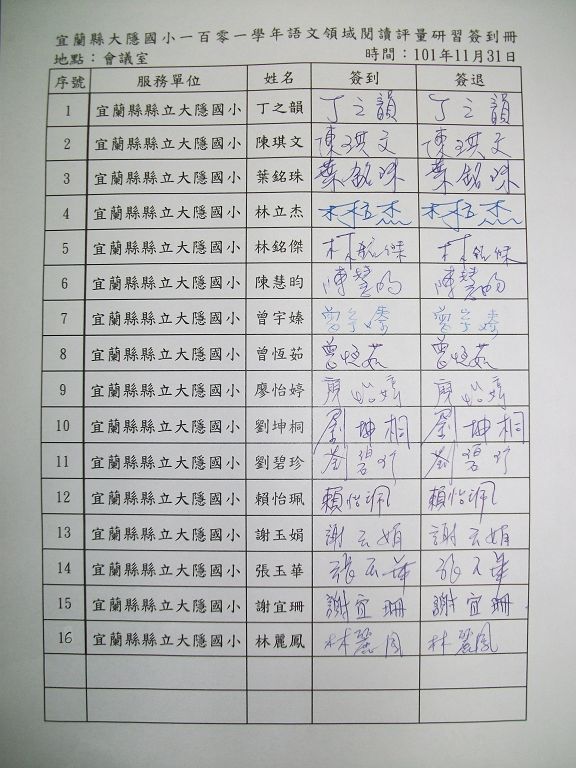 宜蘭縣大隱國小一百零一學年語文領域閱讀評量研習簽到冊
地點：會議室 時間：101年11月31日
序號 服務單位 姓名 簽到 簽退
1 宜蘭縣縣立大隱國小 丁之韻 丁之韻 丁之韻
2 宜蘭縣縣立大隱國小 陳琪文 陳琪文 陳琪文
3 宜蘭縣縣立大隱國小 葉銘珠 葉銘珠 葉銘珠
4 宜蘭縣縣立大隱國小 林立杰 林立杰 林立杰
5 宜蘭縣縣立大隱國小 林銘傑 林銘傑 林銘傑
6 宜蘭縣縣立大隱國小 陳慧昀 陳慧昀 陳慧昀
7 宜蘭縣縣立大隱國小 曾宇嫀 曾宇嫀 曾宇嫀
8 宜蘭縣縣立大隱國小 曾恆茹 曾恆茹 曾恆茹
9 宜蘭縣縣立大隱國小 廖怡婷 廖怡婷 廖怡婷
10 宜蘭縣縣立大隱國小 劉坤桐 劉坤桐 劉坤桐
11 宜蘭縣縣立大隱國小 劉碧珍 劉碧珍 劉碧珍
12 宜蘭縣縣立大隱國小 賴怡珮 賴怡珮 賴怡珮
13 宜蘭縣縣立大隱國小 謝玉娟 謝玉娟 謝玉娟
14 宜蘭縣縣立大隱國小 張玉華 張玉華 張玉華
15 宜蘭縣縣立大隱國小 謝宜珊 謝宜珊 謝宜珊
16 宜蘭縣縣立大隱國小 林麗鳳 林麗鳳 林麗鳳